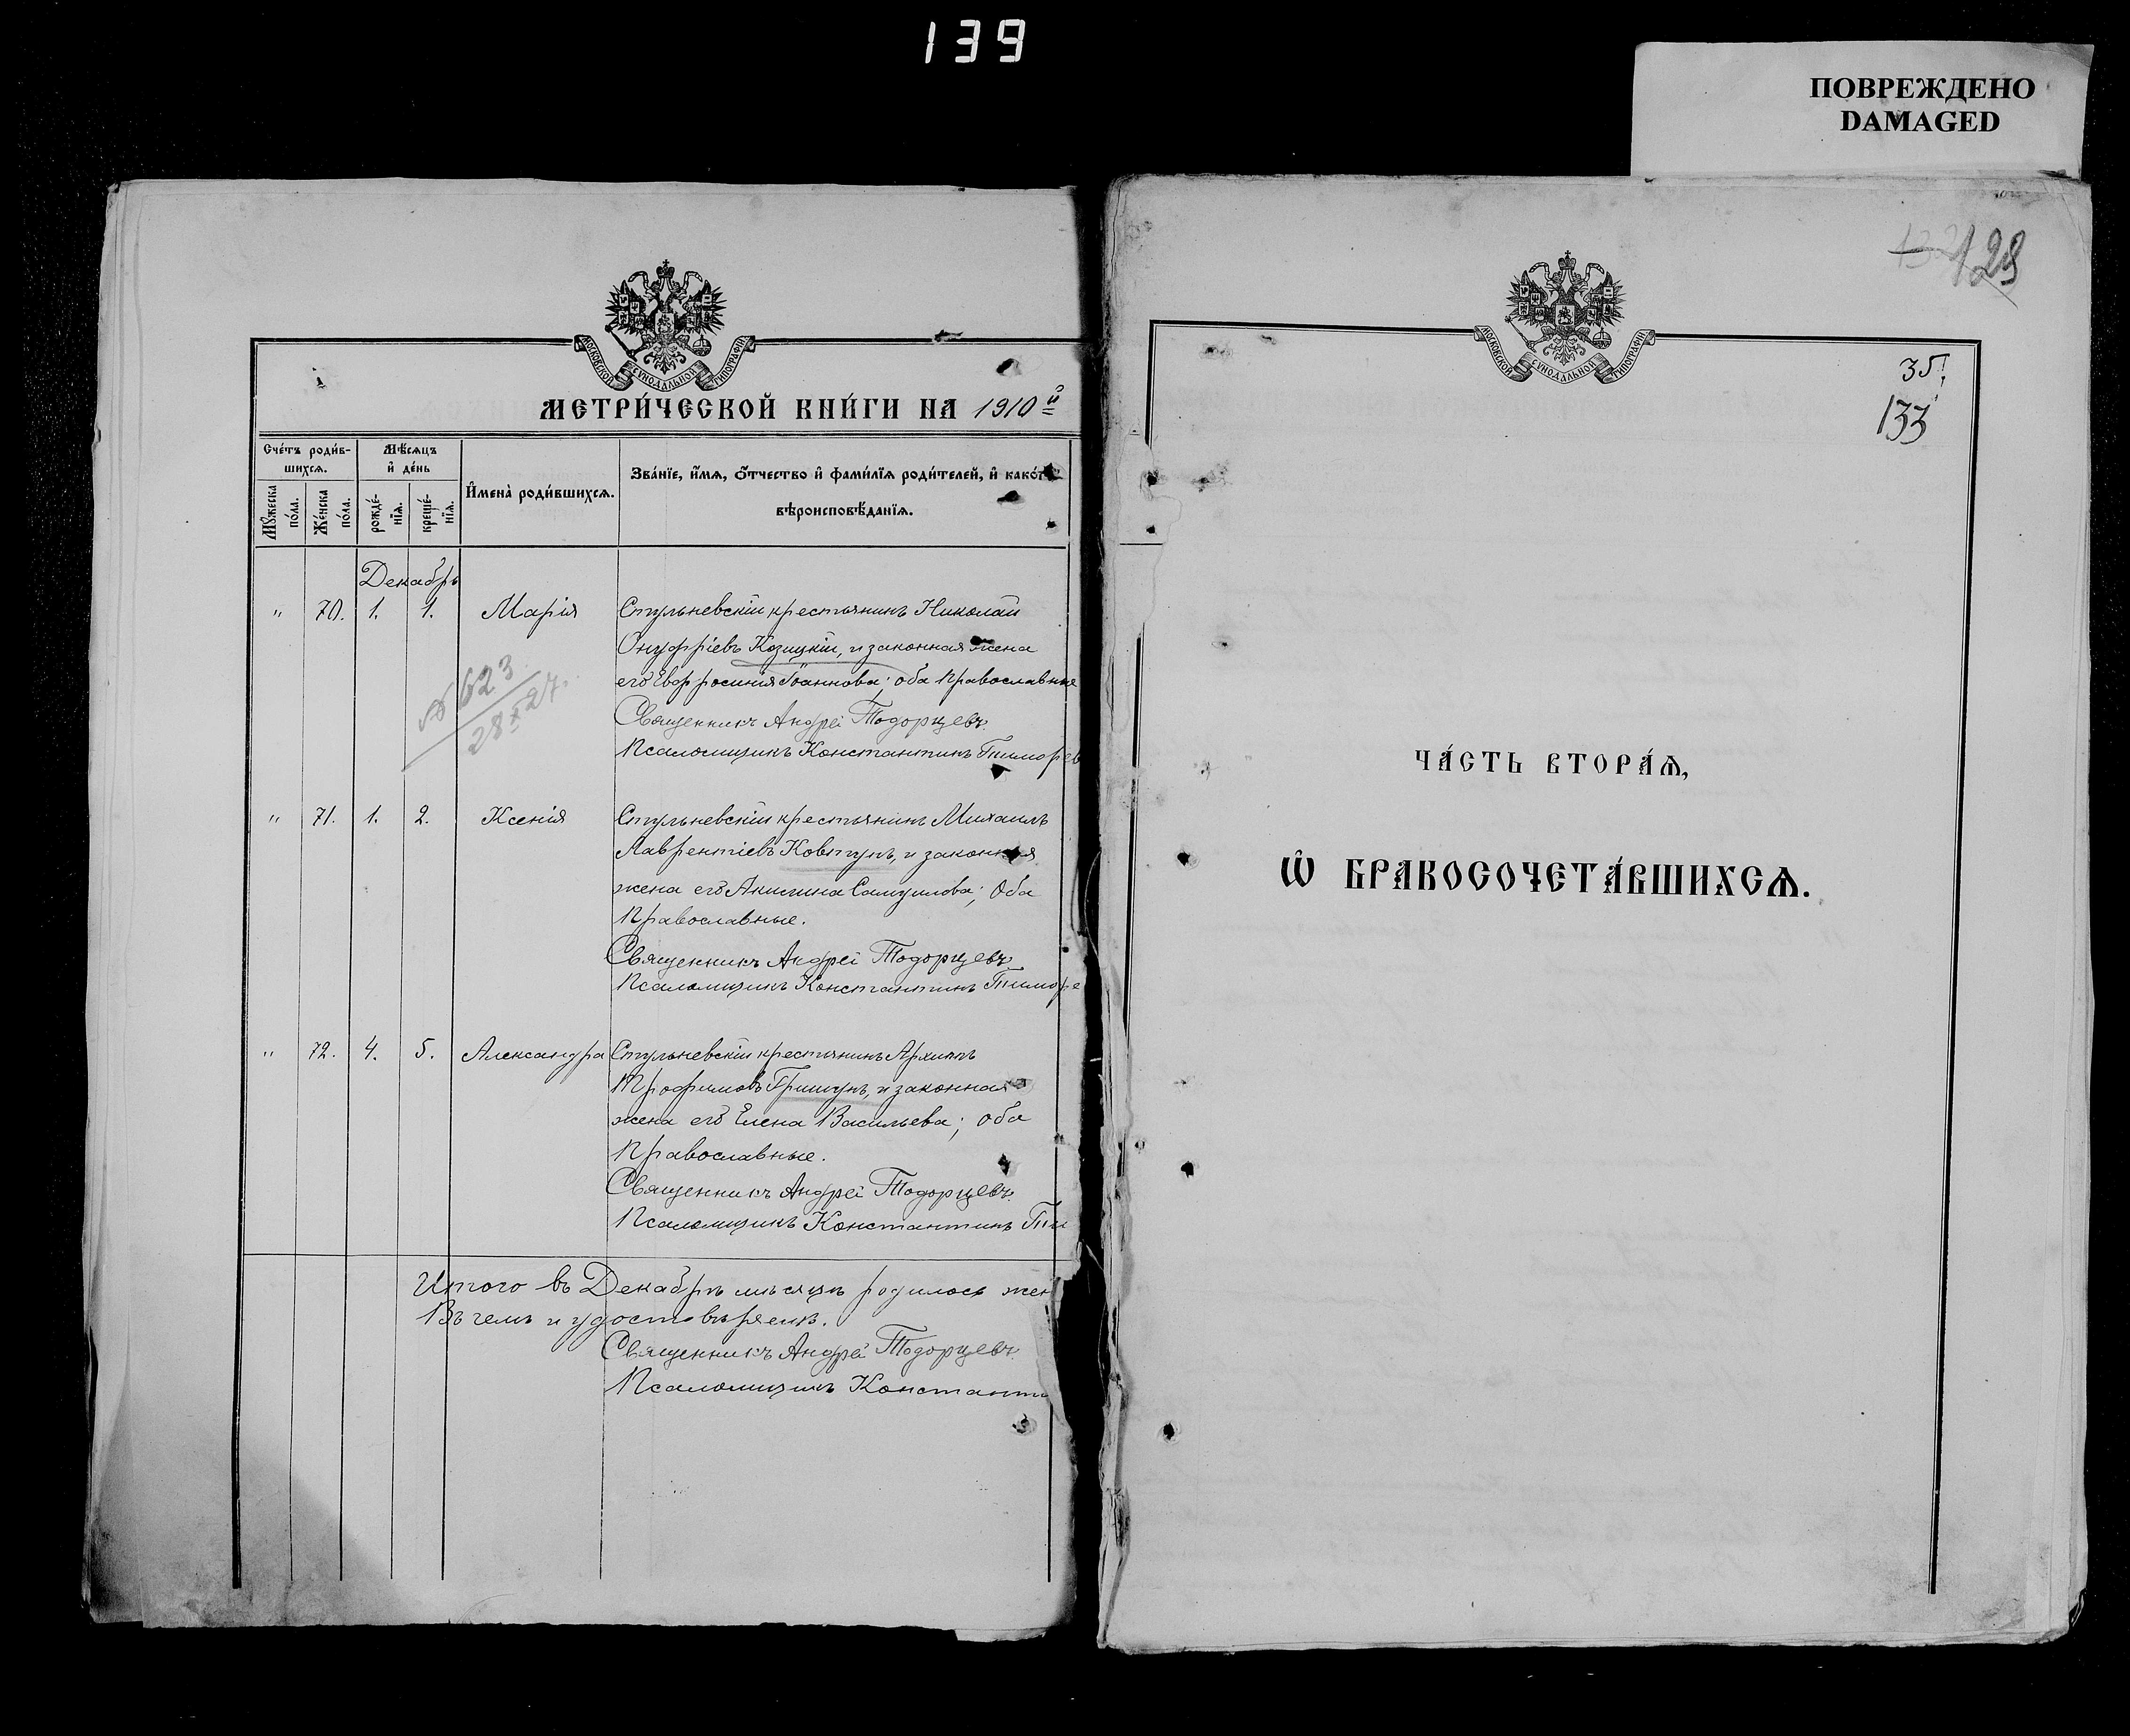 139
ПОВРЕЖДЕНО
DAMAGED
МОСКОВСКОЙ СѴНОДАЛЬНОЙ ТИПОГРАФІИ
МЕТРИ́ЧЕСКОЙ КНИ́ГИ НА 1910й
Сче́тъ роди́в-
шихсѧ.
Мѣ́сѧцъ
и҆ де́нь
И҆мена̀ роди́вшихсѧ.
Зва́нїе, и҆́мѧ, ѻ҆́тчество и҆ фами́лїѧ роди́телей, и҆ како́гѡ
вѣроисповѣ́данїѧ.
Мꙋ́жеска
по́ла.
Же́нска
по́ла.
рожде́-
нїѧ.
креще́-
нїѧ.
Декабрь
" 70. 1. 1. Марія Стульневскій крестьянинъ Николай
Онуфріевъ Козицкій, и законная жена
его Евфросинія Іоаннова; оба Православные
Священникъ Андрей Тодорцевъ
Псаломщикъ Константинъ
№ 623
28 X 27.
" 71. 1. 2. Ксенія Стульневскій крестьянинъ Михаилъ
Лаврентіевъ Ковтунъ, и законная
жена его Акилина Самуилова; Оба
Православные.
Священникъ Андрей Тодорцевъ
Псаломщикъ Константинъ
" 72. 4. 5. Александра Стульневскій крестьянинъ Архипъ
Трофимовъ Гришунъ, и законная
жена его Елена Васильева; оба
Православные.
Священникъ Андрей Тодорцевъ
Псаломщикъ Константинъ
Итого въ Декабрѣ мѣсяцѣ родилось жен
Въ чемъ и удостовѣряемъ.
Священникъ Андрей Тодорцевъ
Псаломщикъ Константи
129
МОСКОВСКОЙ СѴНОДАЛЬНОЙ ТИПОГРАФІИ
35.
133
ЧА́СТЬ ВТОРА́Ѧ,
Ѡ҆ БРАКОСОЧЕТА́ВШИХСѦ.